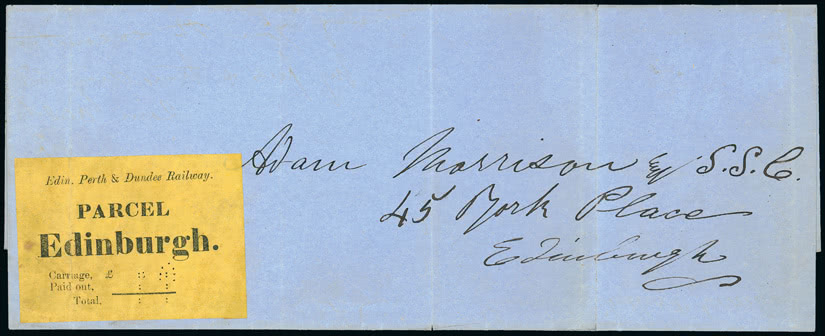 Adam Morrison Esq S.S.C.
45 York Place
Edinburgh
Edin. Perth & Dundee Railway.
PARCEL
Edinburgh.
Carriage, £ : :
Paid out, : :
Total, : :